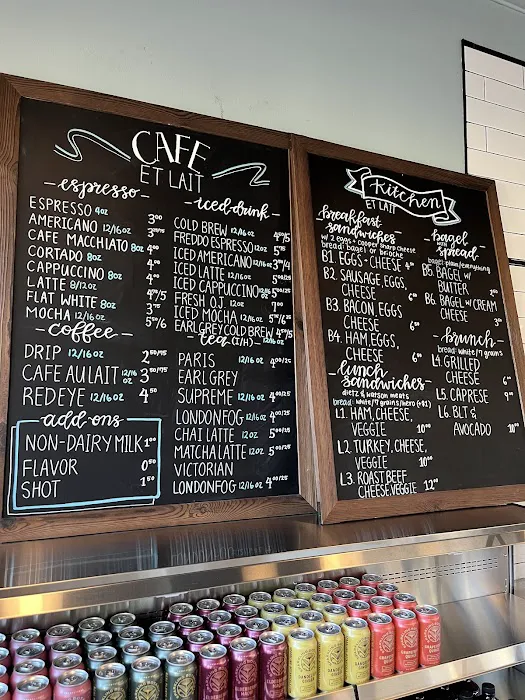 CAFE
ET LAIT
espresso
ESPRESSO 4oz 3⁰⁰
AMERICANO 12/16oz
CAFE MACCHIATO 8oz
CORTADO 8oz 4⁰⁰
CAPPUCCINO 8oz 4⁰⁰
LATTE 8/12oz
FLAT WHITE 8oz
MOCHA 12/16oz
coffee
DRIP 12/16oz
CAFE AU LAIT 12/16oz
REDEYE 12/16oz 4⁵⁰
add-ons
NON-DAIRY MILK 1⁰⁰
FLAVOR 0⁵⁰
SHOT 1⁵⁰
iced drink
COLD BREW 12/16oz
FREDDO ESPRESSO 12oz
ICED AMERICANO 12/16oz
ICED LATTE 12/16oz
ICED CAPPUCCINO 12/16oz
FRESH O.J. 12oz 7⁰⁰
ICED MOCHA 12/16oz
EARL GREY COLD BREW
tea (I/H) 12/16oz
PARIS 12/16oz
EARL GREY
SUPREME 12/16oz
LONDON FOG 12/16oz
CHAI LATTE 12oz
MATCHA LATTE 12oz
VICTORIAN
LONDON FOG 12/16oz
Kitchen
ET LAIT
breakfast
sandwiches
w/ 2 eggs + cooper sharp cheese
bread: bagel or brioche
B1. EGGS + CHEESE
B2. SAUSAGE, EGGS,
CHEESE
B3. BACON, EGGS
CHEESE
B4. HAM, EGGS,
CHEESE
lunch
sandwiches
dietz & watson meats
bread: white/7 grains/hero (+$1)
L1. HAM, CHEESE,
VEGGIE 10⁰⁰
L2. TURKEY, CHEESE,
VEGGIE 10⁰⁰
L3. ROAST BEEF
CHEESE, VEGGIE 12⁰⁰
bagel
with
spread
bagel: plain/everything
B5. BAGEL W/
BUTTER
B6. BAGEL W/ CREAM
CHEESE
brunch
bread: white/7 grains
L4. GRILLED
CHEESE
L5. CAPRESE
L6. BLT &
AVOCADO